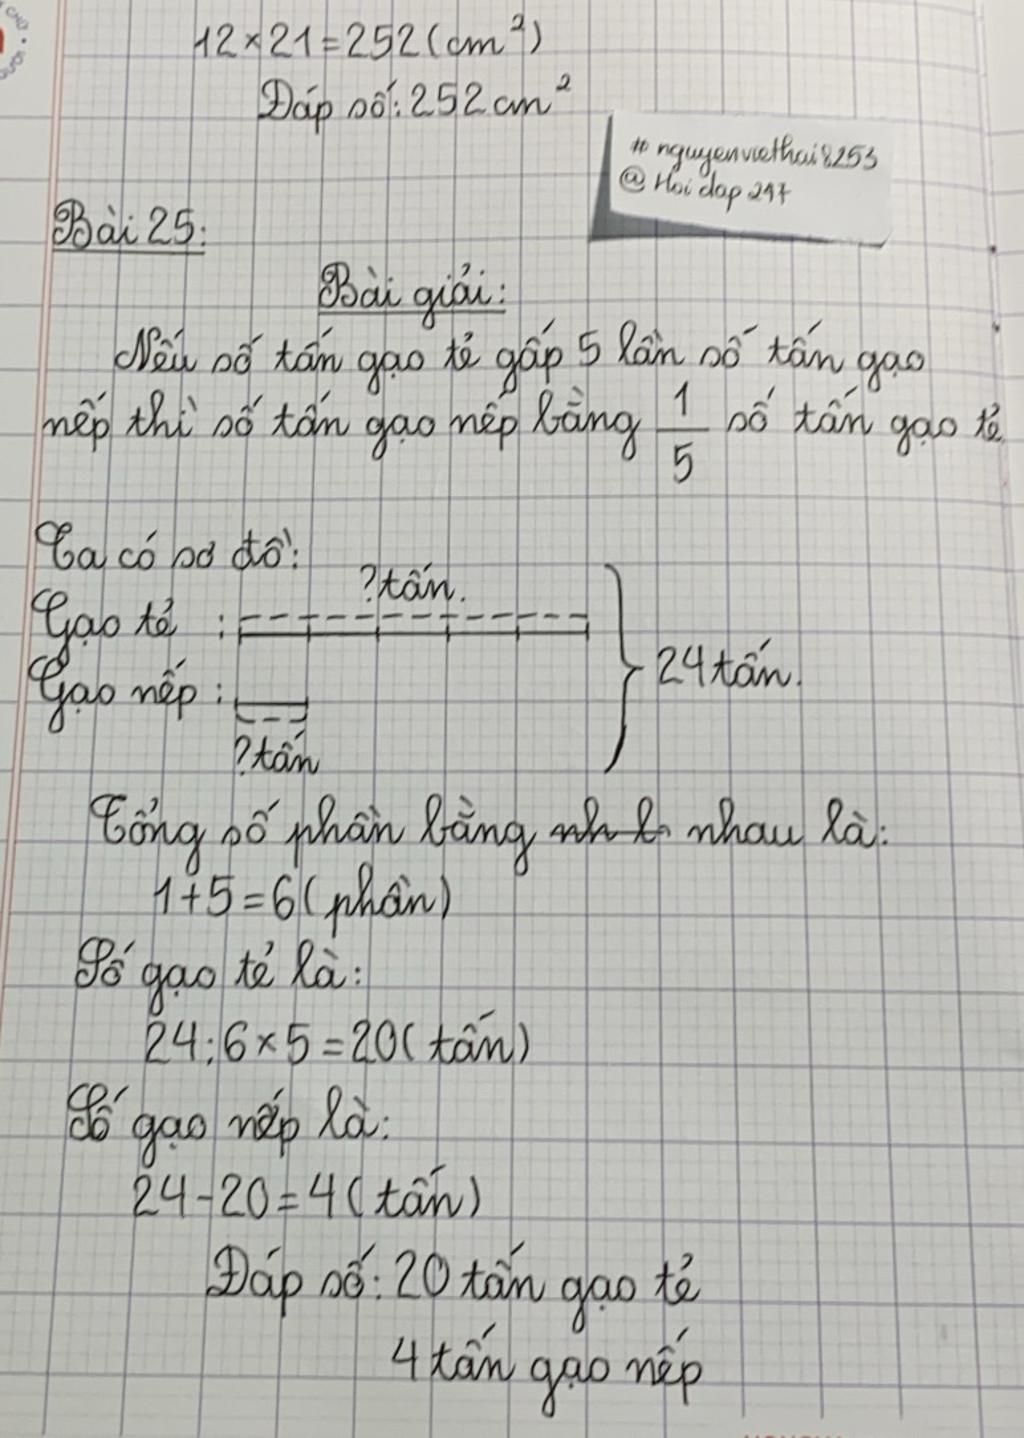 12×21=252(cm²)
Đáp số: 252cm²
# nguyenviethai8253
@ Hoi dap 247
Bài 25:
Bài giải:
Nếu số tấn gạo tẻ gấp 5 lần số tấn gạo
nếp thì số tấn gạo nếp bằng 1/5 số tấn gạo tẻ
Ta có sơ đồ:
?tấn.
Gạo tẻ :
24 tấn.
Gạo nếp :
?tấn
Tổng số phần bằng nhau là:
1+5=6(phần)
Số gạo tẻ là:
24:6×5=20(tấn)
Số gạo nếp là:
24-20=4(tấn)
Đáp số: 20 tấn gạo tẻ
4 tấn gạo nếp